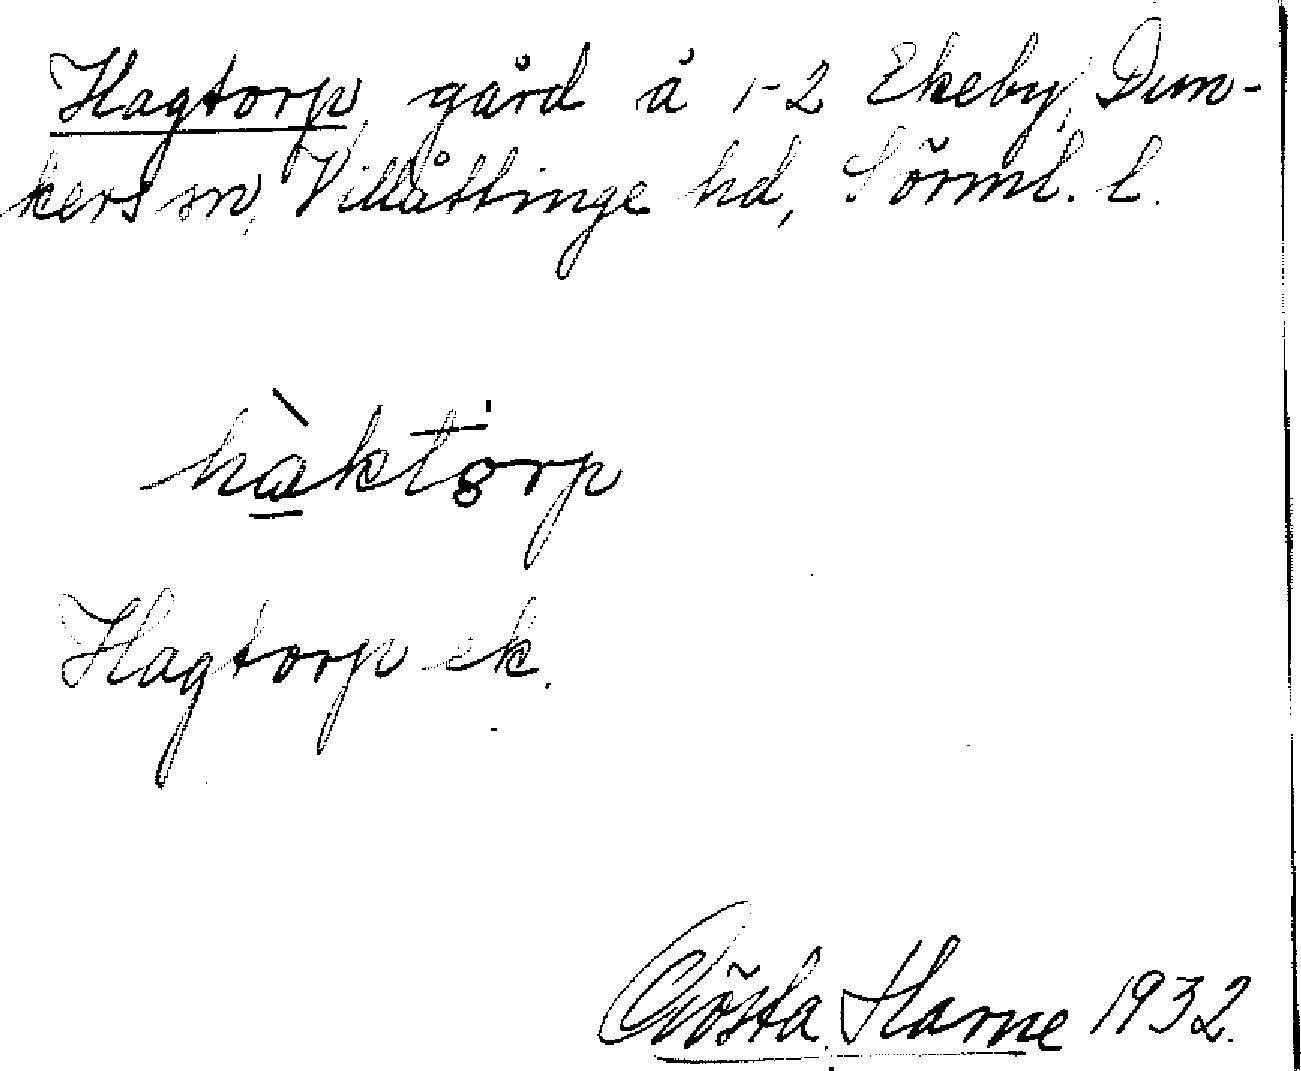 Hagtorp, gård å 1-2 Ekeby, Dun-
kers sn, Villåttinge hd, Sörml. l.
hàktorp
Hagtorp ek.
Gösta Harne 1932.